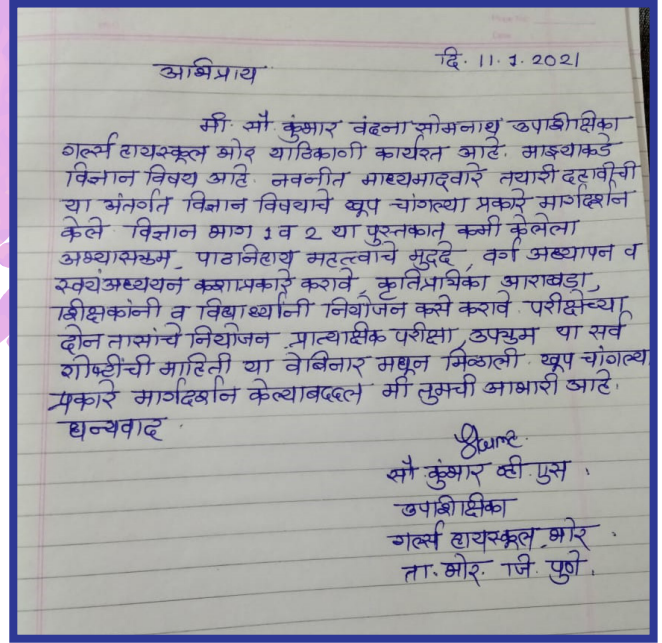 दि. 11.1.2021
अभिप्राय
मी. सौ. कुंभार वंदना सोमनाथ उपशिक्षिका
गर्ल्स हायस्कूल भोर याठिकाणी कार्यरत आहे. माझ्याकडे
विज्ञान विषय आहे. नवनीत माध्यमाद्वारे तयारी दहावीची
या अंतर्गत विज्ञान विषयाचे खूप चांगल्या प्रकारे मार्गदर्शन
केले. विज्ञान भाग 1 व 2 या पुस्तकात कमी केलेला
अभ्यासक्रम, पाठानिहाय महत्त्वाचे मुद्दे, वर्ग अध्यापन व
स्वयंअध्ययन कशाप्रकारे करावे, कृतिपत्रिका आराखडा,
शिक्षकांनी व विद्यार्थ्यांनी नियोजन कसे करावे. परीक्षेच्या
दोन तासांचे नियोजन, प्रात्यक्षिक परीक्षा, उपक्रम या सर्व
गोष्टींची माहिती या वेबिनार मधून मिळाली. खूप चांगल्या
प्रकारे मार्गदर्शन केल्याबद्दल मी तुमची आभारी आहे.
धन्यवाद.
सौ कुंभार व्ही. एस.
उपशिक्षिका
गर्ल्स हायस्कूल, भोर.
ता. भोर. जि. पुणे.